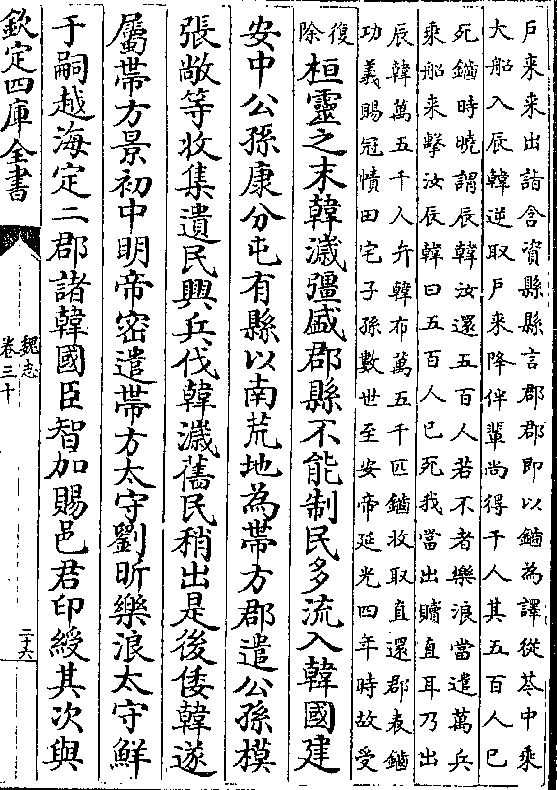 戶來來出詣含資縣縣言郡郡即以鑡為譯從芩中乘
大船入辰韓逆取戶來降伴輩尚得千人其五百人已
死鑡時曉謂辰韓汝還五百人若不者樂浪當遣萬兵
乘船来擊汝辰韓曰五百人已死我當出贖直耳乃出
辰韓萬五千人弁韓布萬五千匹鑡收取直還郡表鑡
功義賜冠幘田宅子孫數世至安帝延光四年時故受
復
除
桓靈之末韓濊彊盛郡縣不能制民多流入韓國建
安中公孫康分屯有縣以南荒地為帶方郡遣公孫模
張敞等收集遺民興兵伐韓濊舊民稍出是後倭韓遂
屬帶方景初中明帝密遣帶方太守劉昕樂浪太守鮮
于嗣越海定二郡諸韓國臣智加賜邑君印綬其次與
欽定四庫全書
魏志
卷三十
二十六